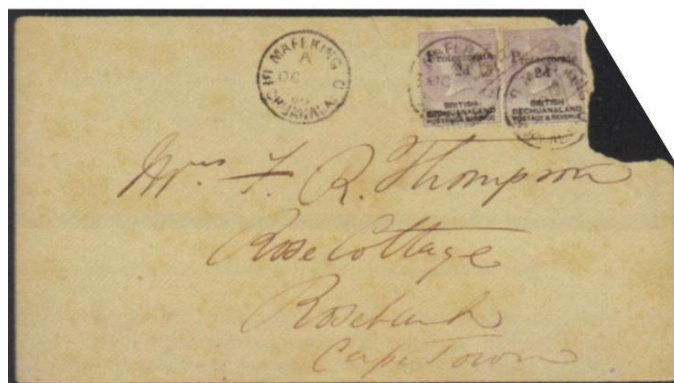 MAFEKING
A
OC
BECHUANALAND
Protectorate
2d
BRITISH
BECHUANALAND
POSTAGE & REVENUE
Protectorate
2d
BRITISH
BECHUANALAND
POSTAGE & REVENUE
Mrs F. R. Thompson
Rose Cottage
Rosebank
Cape Town